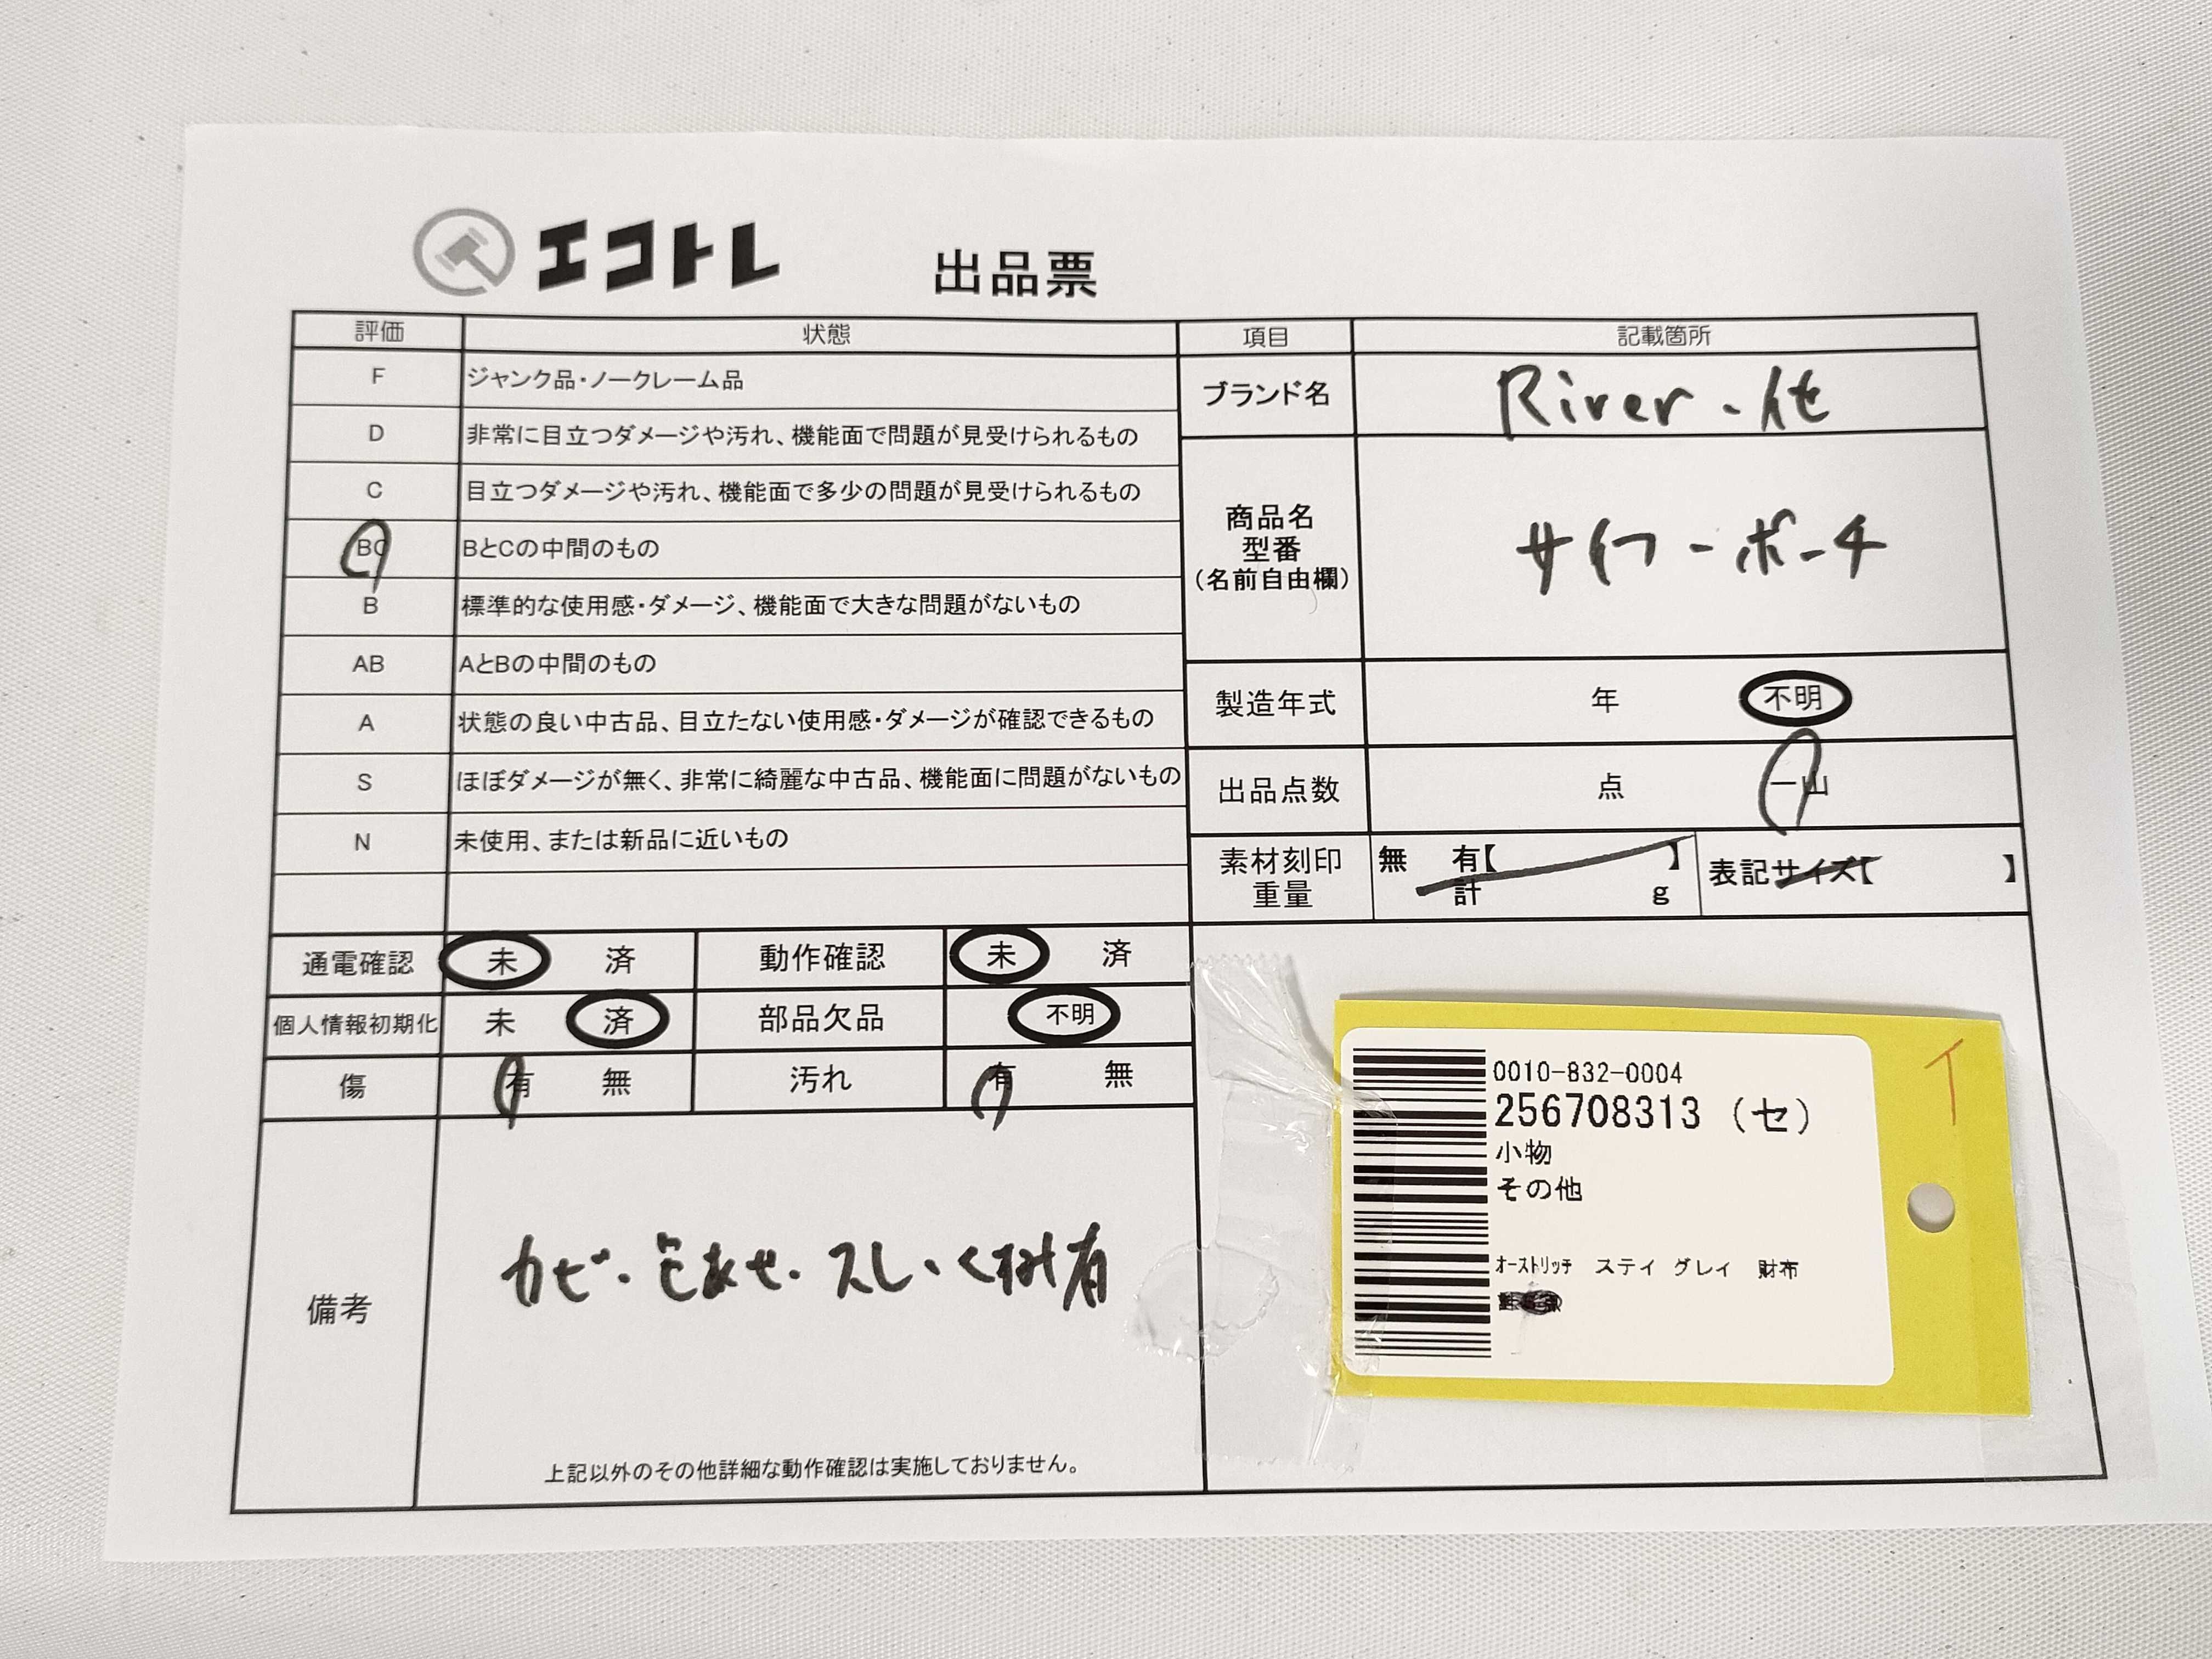 エコトレ 出品票
評価 状態
F ジャンク品・ノークレーム品
D 非常に目立つダメージや汚れ、機能面で問題が見受けられるもの
C 目立つダメージや汚れ、機能面で多少の問題が見受けられるもの
BC BとCの中間のもの
B 標準的な使用感・ダメージ、機能面で大きな問題がないもの
AB AとBの中間のもの
A 状態の良い中古品、目立たない使用感・ダメージが確認できるもの
S ほぼダメージが無く、非常に綺麗な中古品、機能面に問題がないもの
N 未使用、または新品に近いもの
項目 記載箇所
ブランド名 River・他
商品名
型番
(名前自由欄)
サイフ・ポーチ
製造年式 年 不明
出品点数 点 一山
素材刻印
重量
無 有【 】
計 g
表記サイズ【 】
通電確認 未 済 動作確認 未 済
個人情報初期化 未 済 部品欠品 不明
傷 有 無 汚れ 有 無
備考
カビ・色あせ・スレ・くすみ有
上記以外のその他詳細な動作確認は実施しておりません。
0010-832-0004
256708313 (セ)
小物
その他
オーストリッチ ステイ グレイ 財布
イ